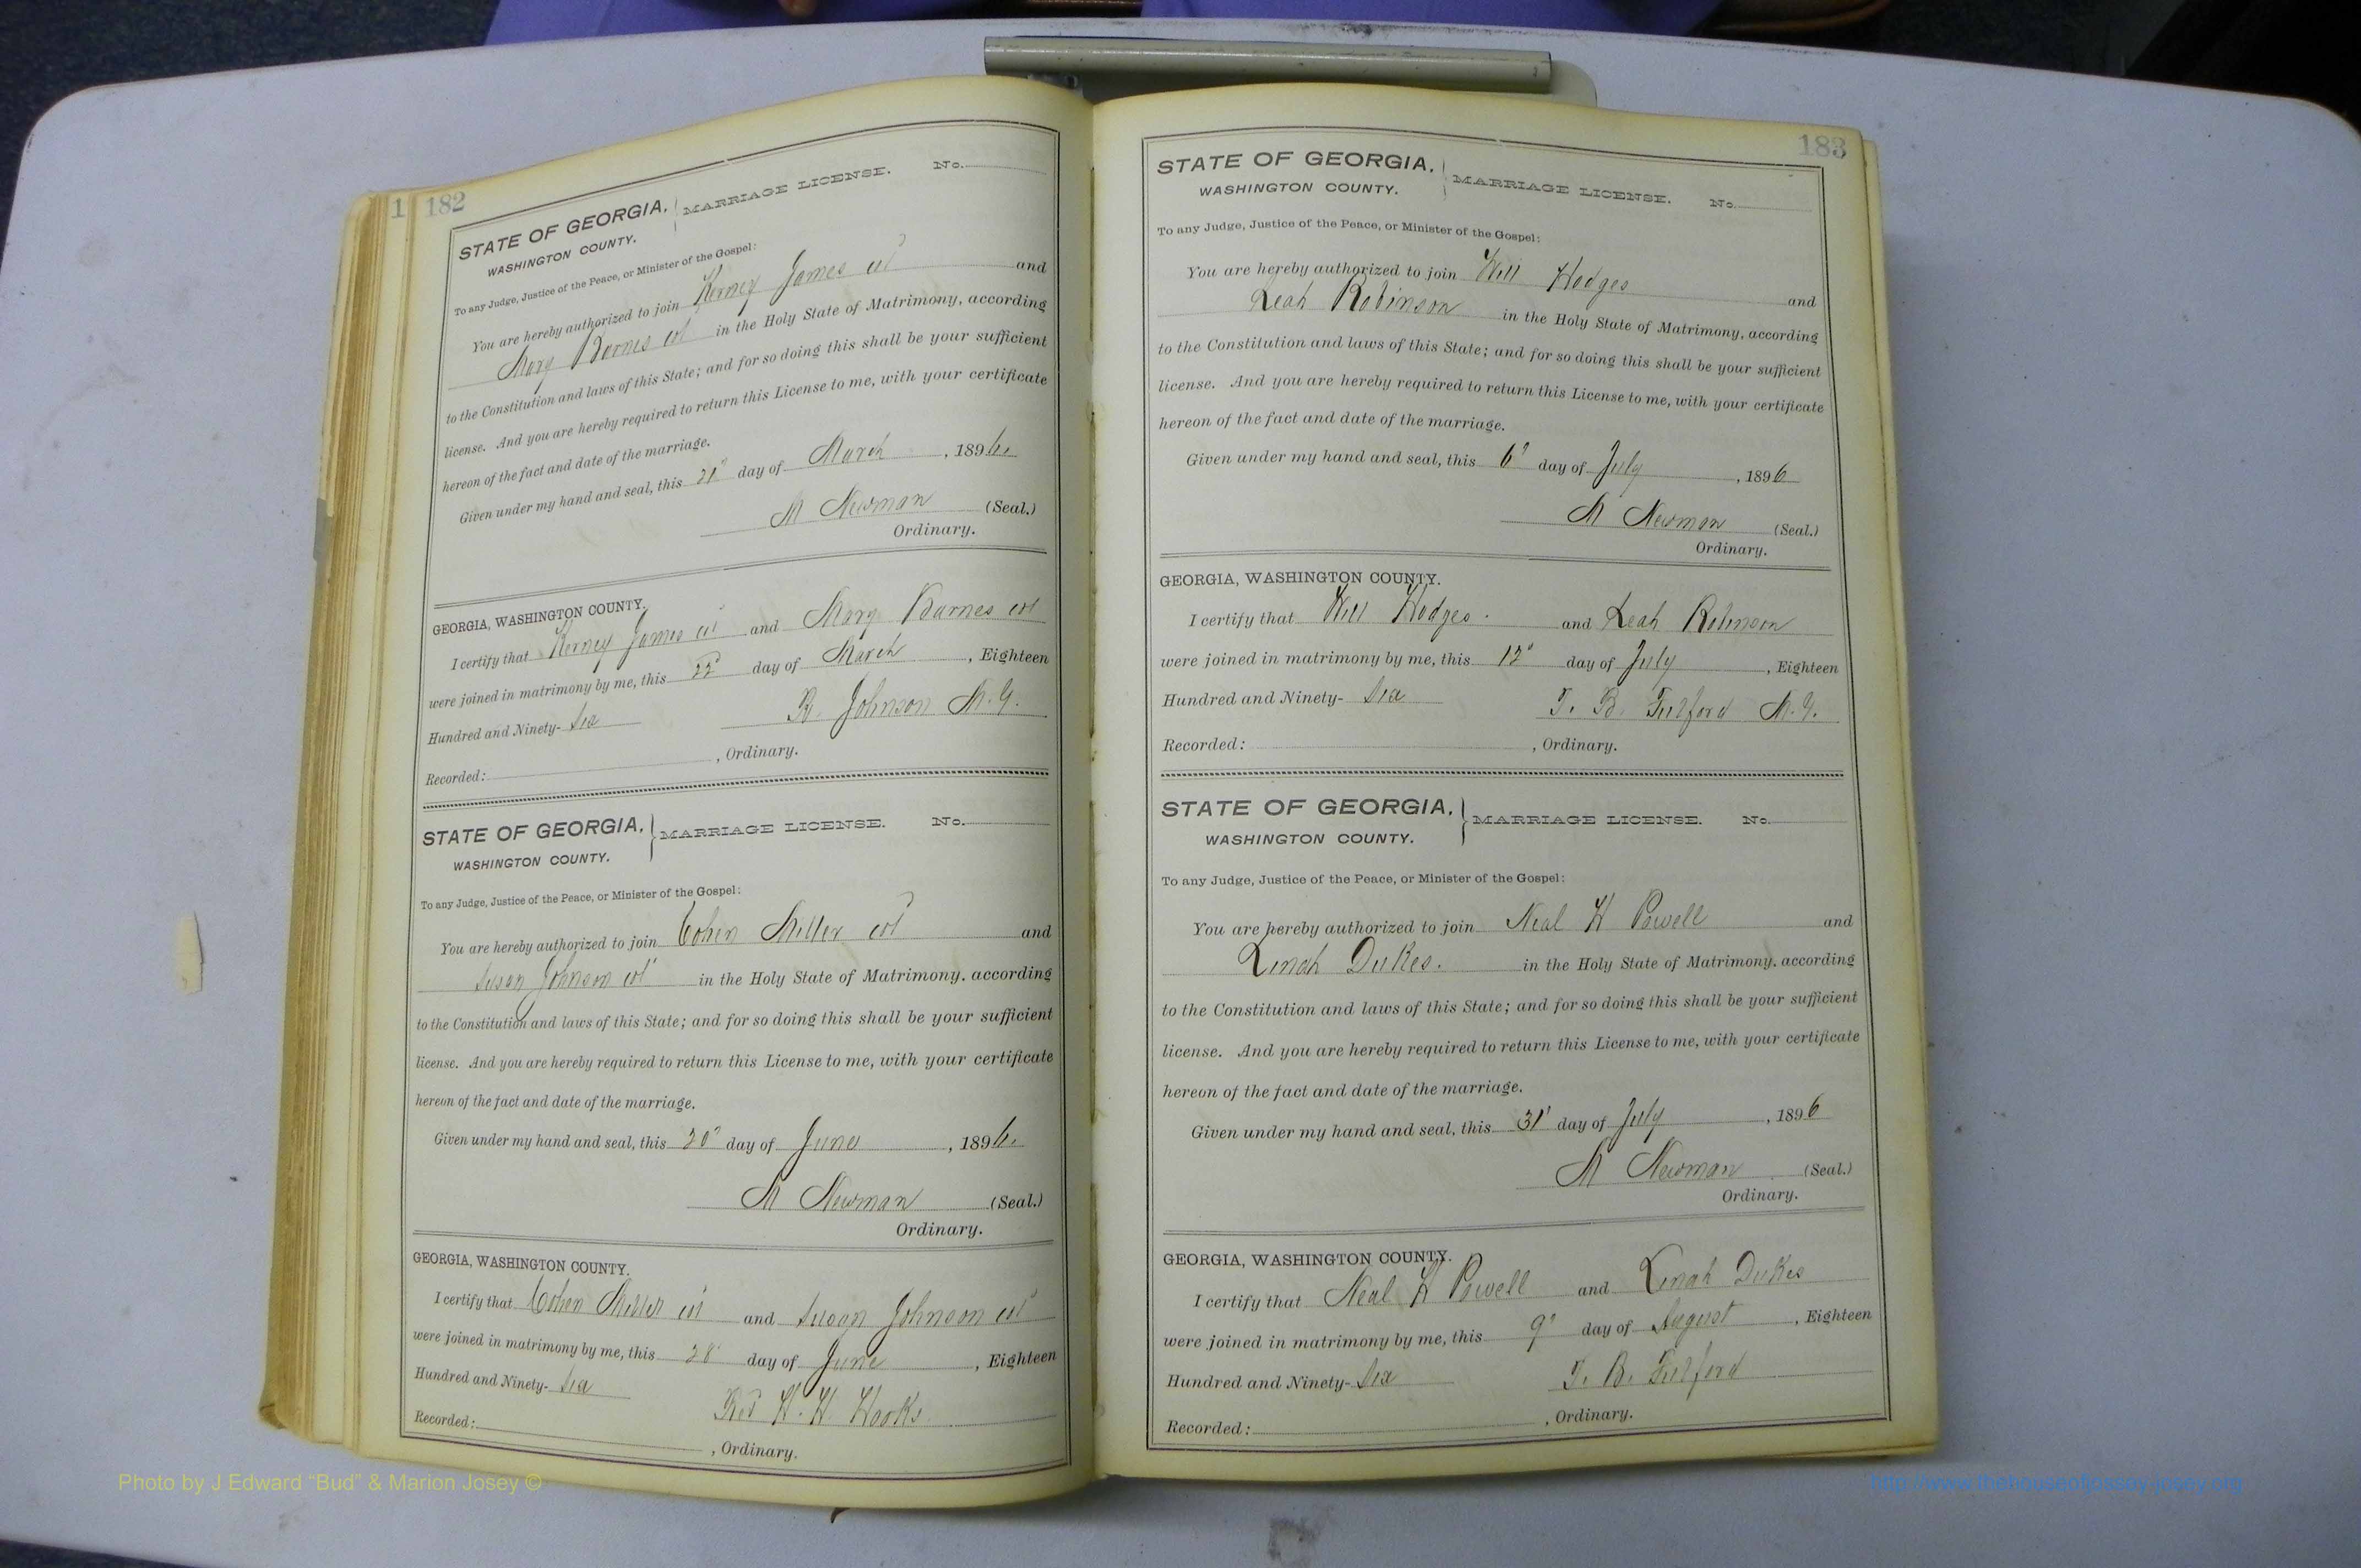 1 182
STATE OF GEORGIA, MARRIAGE LICENSE. No.
WASHINGTON COUNTY.
To any Judge, Justice of the Peace, or Minister of the Gospel:
You are hereby authorized to join James col and
Mary Barnes col in the Holy State of Matrimony, according
to the Constitution and laws of this State; and for so doing this shall be your sufficient
license. And you are hereby required to return this License to me, with your certificate
hereon of the fact and date of the marriage.
Given under my hand and seal, this 21" day of March, 1896.
M Newman (Seal.)
Ordinary.
GEORGIA, WASHINGTON COUNTY.
I certify that James col and Mary Barnes col
were joined in matrimony by me, this 22" day of March, Eighteen
Hundred and Ninety-Six R. Johnson M.G.
Recorded: , Ordinary.
STATE OF GEORGIA, MARRIAGE LICENSE. No.
WASHINGTON COUNTY.
To any Judge, Justice of the Peace, or Minister of the Gospel:
You are hereby authorized to join Cohen Miller col and
Susan Johnson col in the Holy State of Matrimony. according
to the Constitution and laws of this State; and for so doing this shall be your sufficient
license. And you are hereby required to return this License to me, with your certificate
hereon of the fact and date of the marriage.
Given under my hand and seal, this day of June, 1896.
M Newman (Seal.)
Ordinary.
GEORGIA, WASHINGTON COUNTY.
I certify that Cohen Miller col and Susan Johnson col
were joined in matrimony by me, this 28" day of June, Eighteen
Hundred and Ninety-Six Rev H. H. Hooks
Recorded: , Ordinary.
183
STATE OF GEORGIA, MARRIAGE LICENSE. No.
WASHINGTON COUNTY.
To any Judge, Justice of the Peace, or Minister of the Gospel:
You are hereby authorized to join Will Hodges and
Leah Robinson in the Holy State of Matrimony, according
to the Constitution and laws of this State; and for so doing this shall be your sufficient
license. And you are hereby required to return this License to me, with your certificate
hereon of the fact and date of the marriage.
Given under my hand and seal, this 6" day of July, 1896
M Newman (Seal.)
Ordinary.
GEORGIA, WASHINGTON COUNTY.
I certify that Will Hodges. and Leah Robinson
were joined in matrimony by me, this 12" day of July, Eighteen
Hundred and Ninety-Six T. B. Fulford M.G.
Recorded: , Ordinary.
STATE OF GEORGIA, MARRIAGE LICENSE. No.
WASHINGTON COUNTY.
To any Judge, Justice of the Peace, or Minister of the Gospel:
You are hereby authorized to join Neal H Powell and
Linah Dukes. in the Holy State of Matrimony. according
to the Constitution and laws of this State; and for so doing this shall be your sufficient
license. And you are hereby required to return this License to me, with your certificate
hereon of the fact and date of the marriage.
Given under my hand and seal, this 31" day of July, 1896
M Newman (Seal.)
Ordinary.
GEORGIA, WASHINGTON COUNTY.
I certify that Neal H Powell and Linah Dukes
were joined in matrimony by me, this 9" day of August, Eighteen
Hundred and Ninety-Six T. B. Fulford
Recorded: , Ordinary.
Photo by J Edward “Bud” & Marion Josey ©
http://www.thehouseofjossey-josey.org